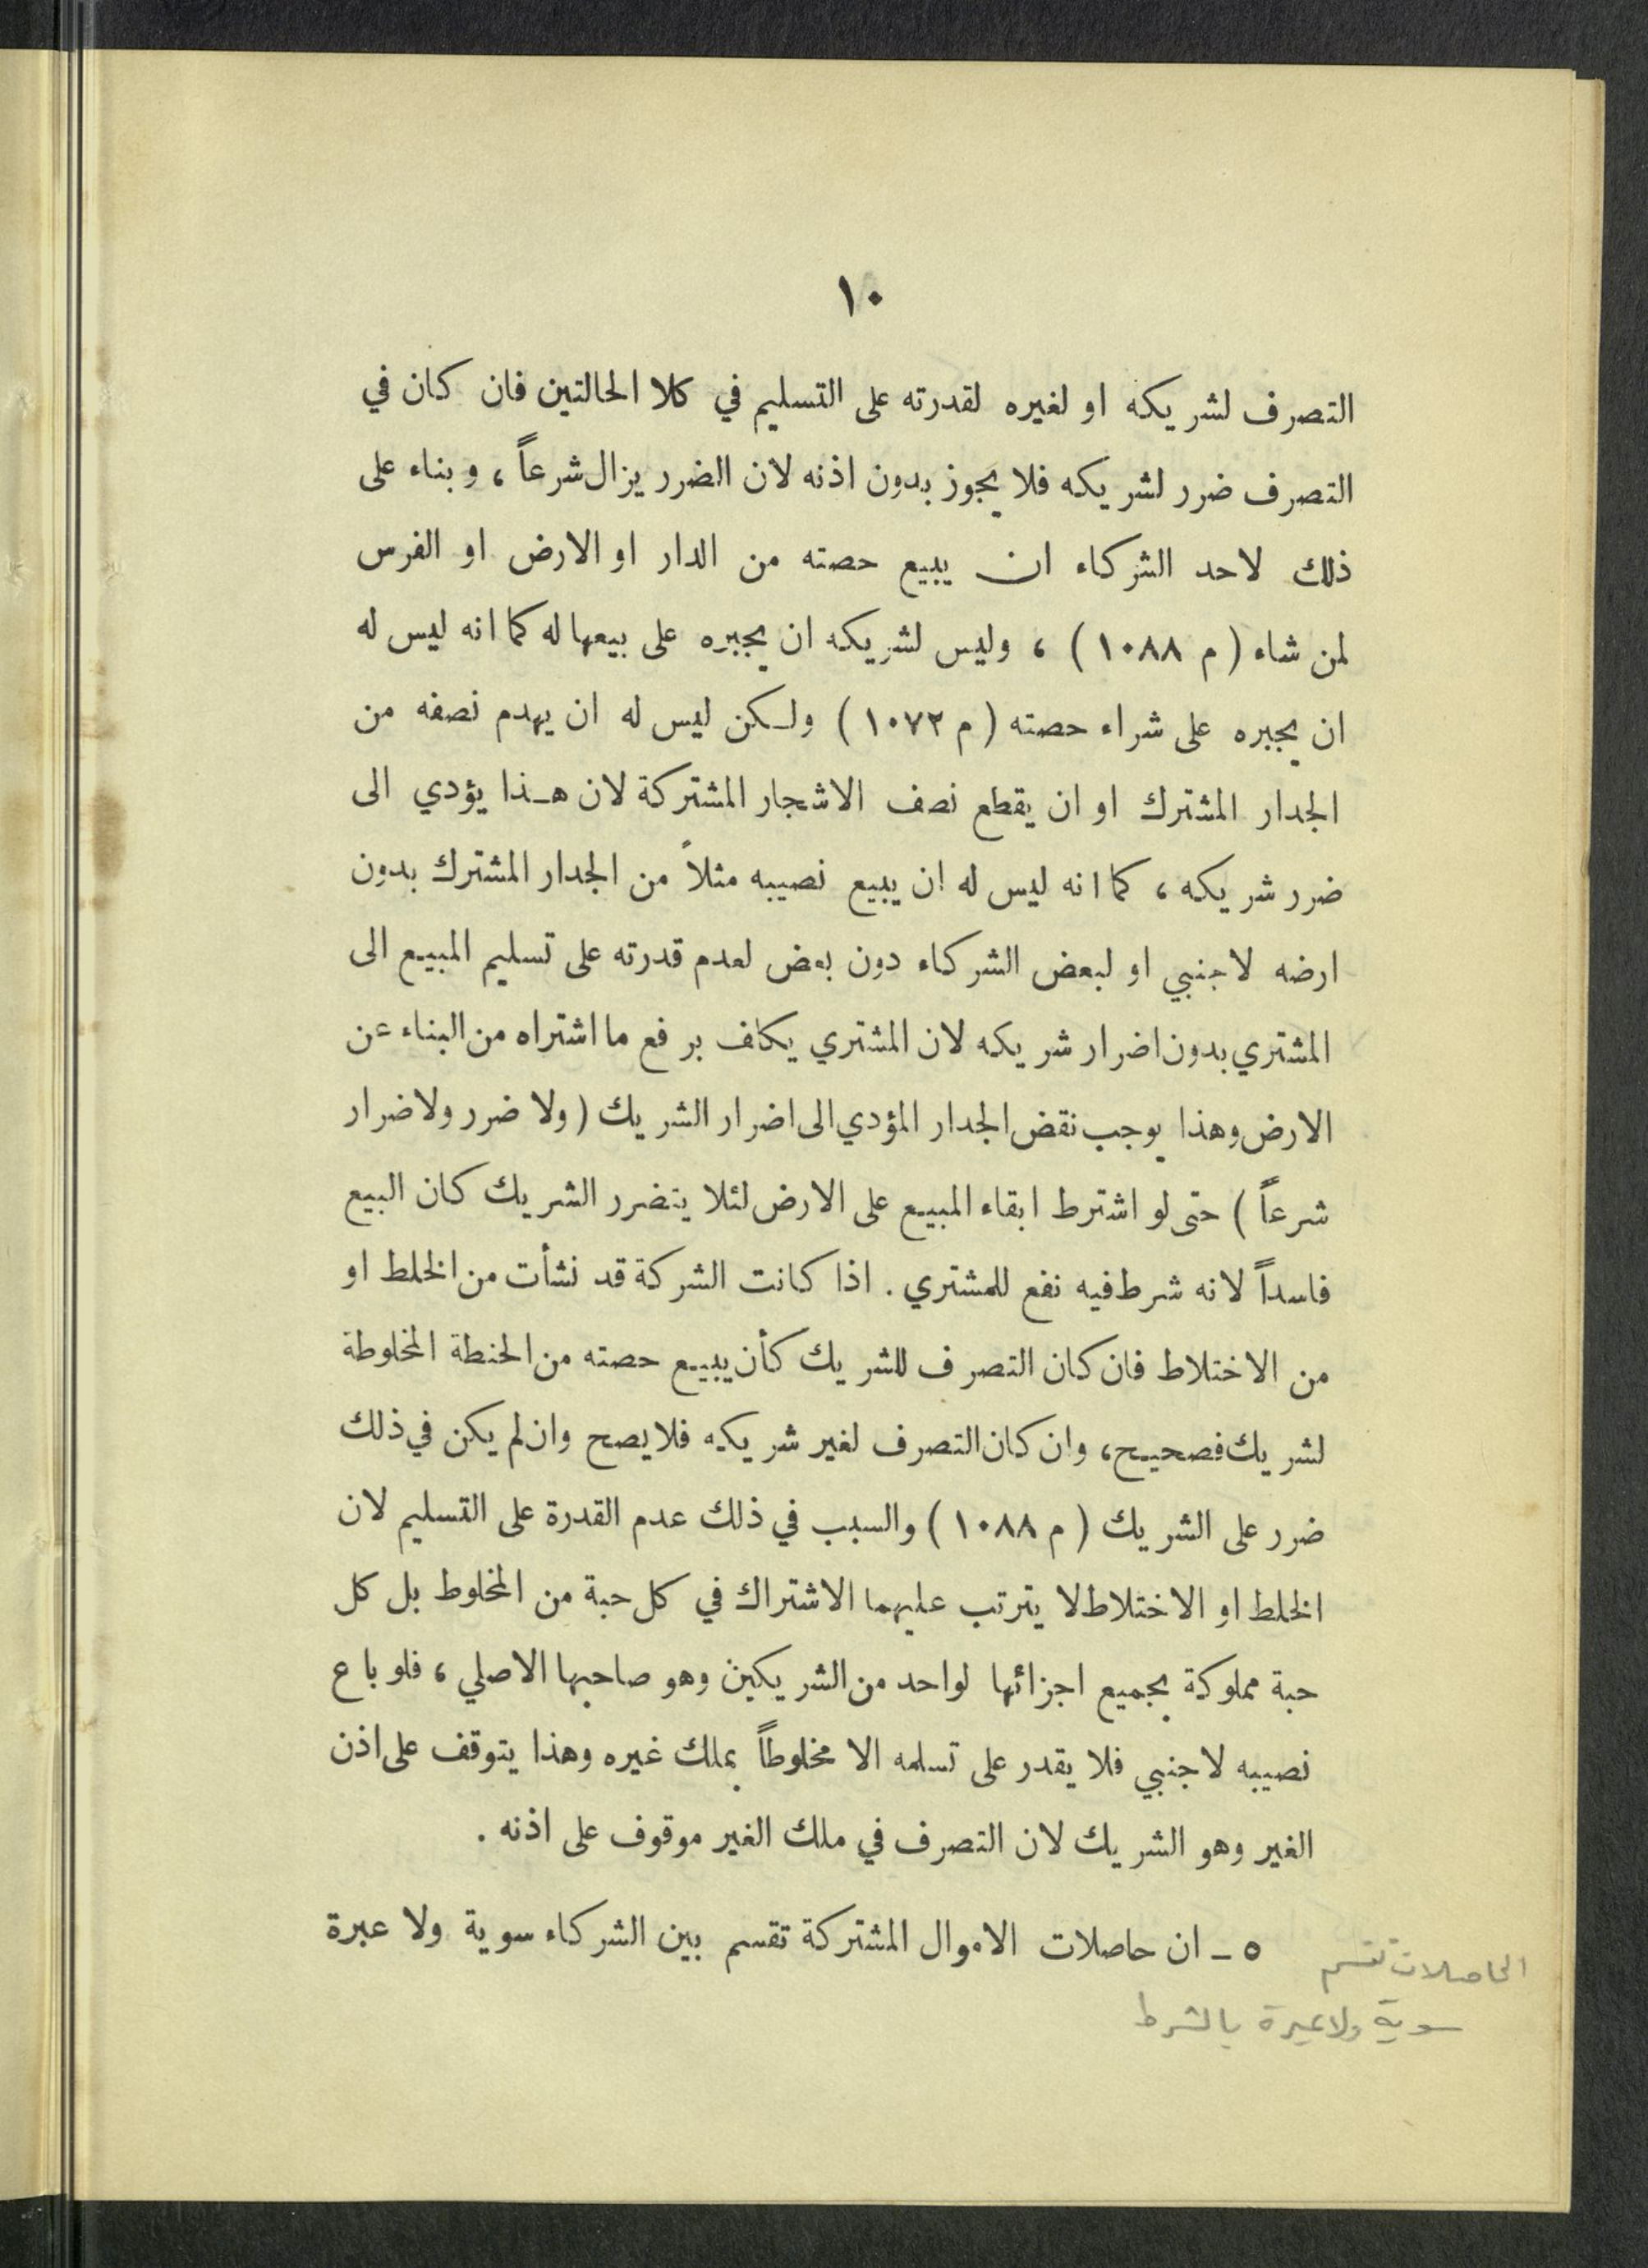 ١٠
التصرف لشريكه او لغيره لقدرته على التسليم في كلا الحالتين فان كان في
التصرف ضرر لشريكه فلا يجوز بدون اذنه لان الضرر يزال شرعاً ، وبناء على
ذلك لاحد الشركاء ان يبيع حصته من الدار او الارض او الفرس
لمن شاء ( م ١٠٨٨ ) ، وليس لشريكه ان يجبره على بيعها له كما انه ليس له
ان يجبره على شراء حصته ( م ١٠٧٢ ) ولكن ليس له ان يهدم نصفه من
الجدار المشترك او ان يقطع نصف الاشجار المشتركة لان هذا يؤدي الى
ضرر شريكه ، كما انه ليس له ان يبيع نصيبه مثلاً من الجدار المشترك بدون
ارضه لاجنبي او لبعض الشركاء دون بعض لعدم قدرته على تسليم المبيع الى
المشتري بدون اضرار شريكه لان المشتري يكلف برفع ما اشتراه من البناء عن
الارض وهذا يوجب نقض الجدار المؤدي الى اضرار الشريك ( ولا ضرر ولا ضرار
شرعاً ) حتى لو اشترط ابقاء المبيع على الارض لئلا يتضرر الشريك كان البيع
فاسداً لانه شرط فيه نفع للمشتري . اذا كانت الشركة قد نشأت من الخلط او
من الاختلاط فان كان التصرف للشريك كأن يبيع حصته من الحنطة المخلوطة
لشريك فصحيح ، وان كان التصرف لغير شريكه فلا يصح وان لم يكن في ذلك
ضرر على الشريك ( م ١٠٨٨ ) والسبب في ذلك عدم القدرة على التسليم لان
الخلط او الاختلاط لا يترتب عليهما الاشتراك في كل حبة من المخلوط بل كل
حبة مملوكة بجميع اجزائها لواحد من الشريكين وهو صاحبها الاصلي ، فلو باع
نصيبه لاجنبي فلا يقدر على تسلمه الا مخلوطاً بملك غيره وهذا يتوقف على اذن
الغير وهو الشريك لان التصرف في ملك الغير موقوف على اذنه .
٥ - ان حاصلات الاموال المشتركة تقسم بين الشركاء سوية ولا عبرة
الحاصلات تقسم
سوية ولا عبرة بالشرط